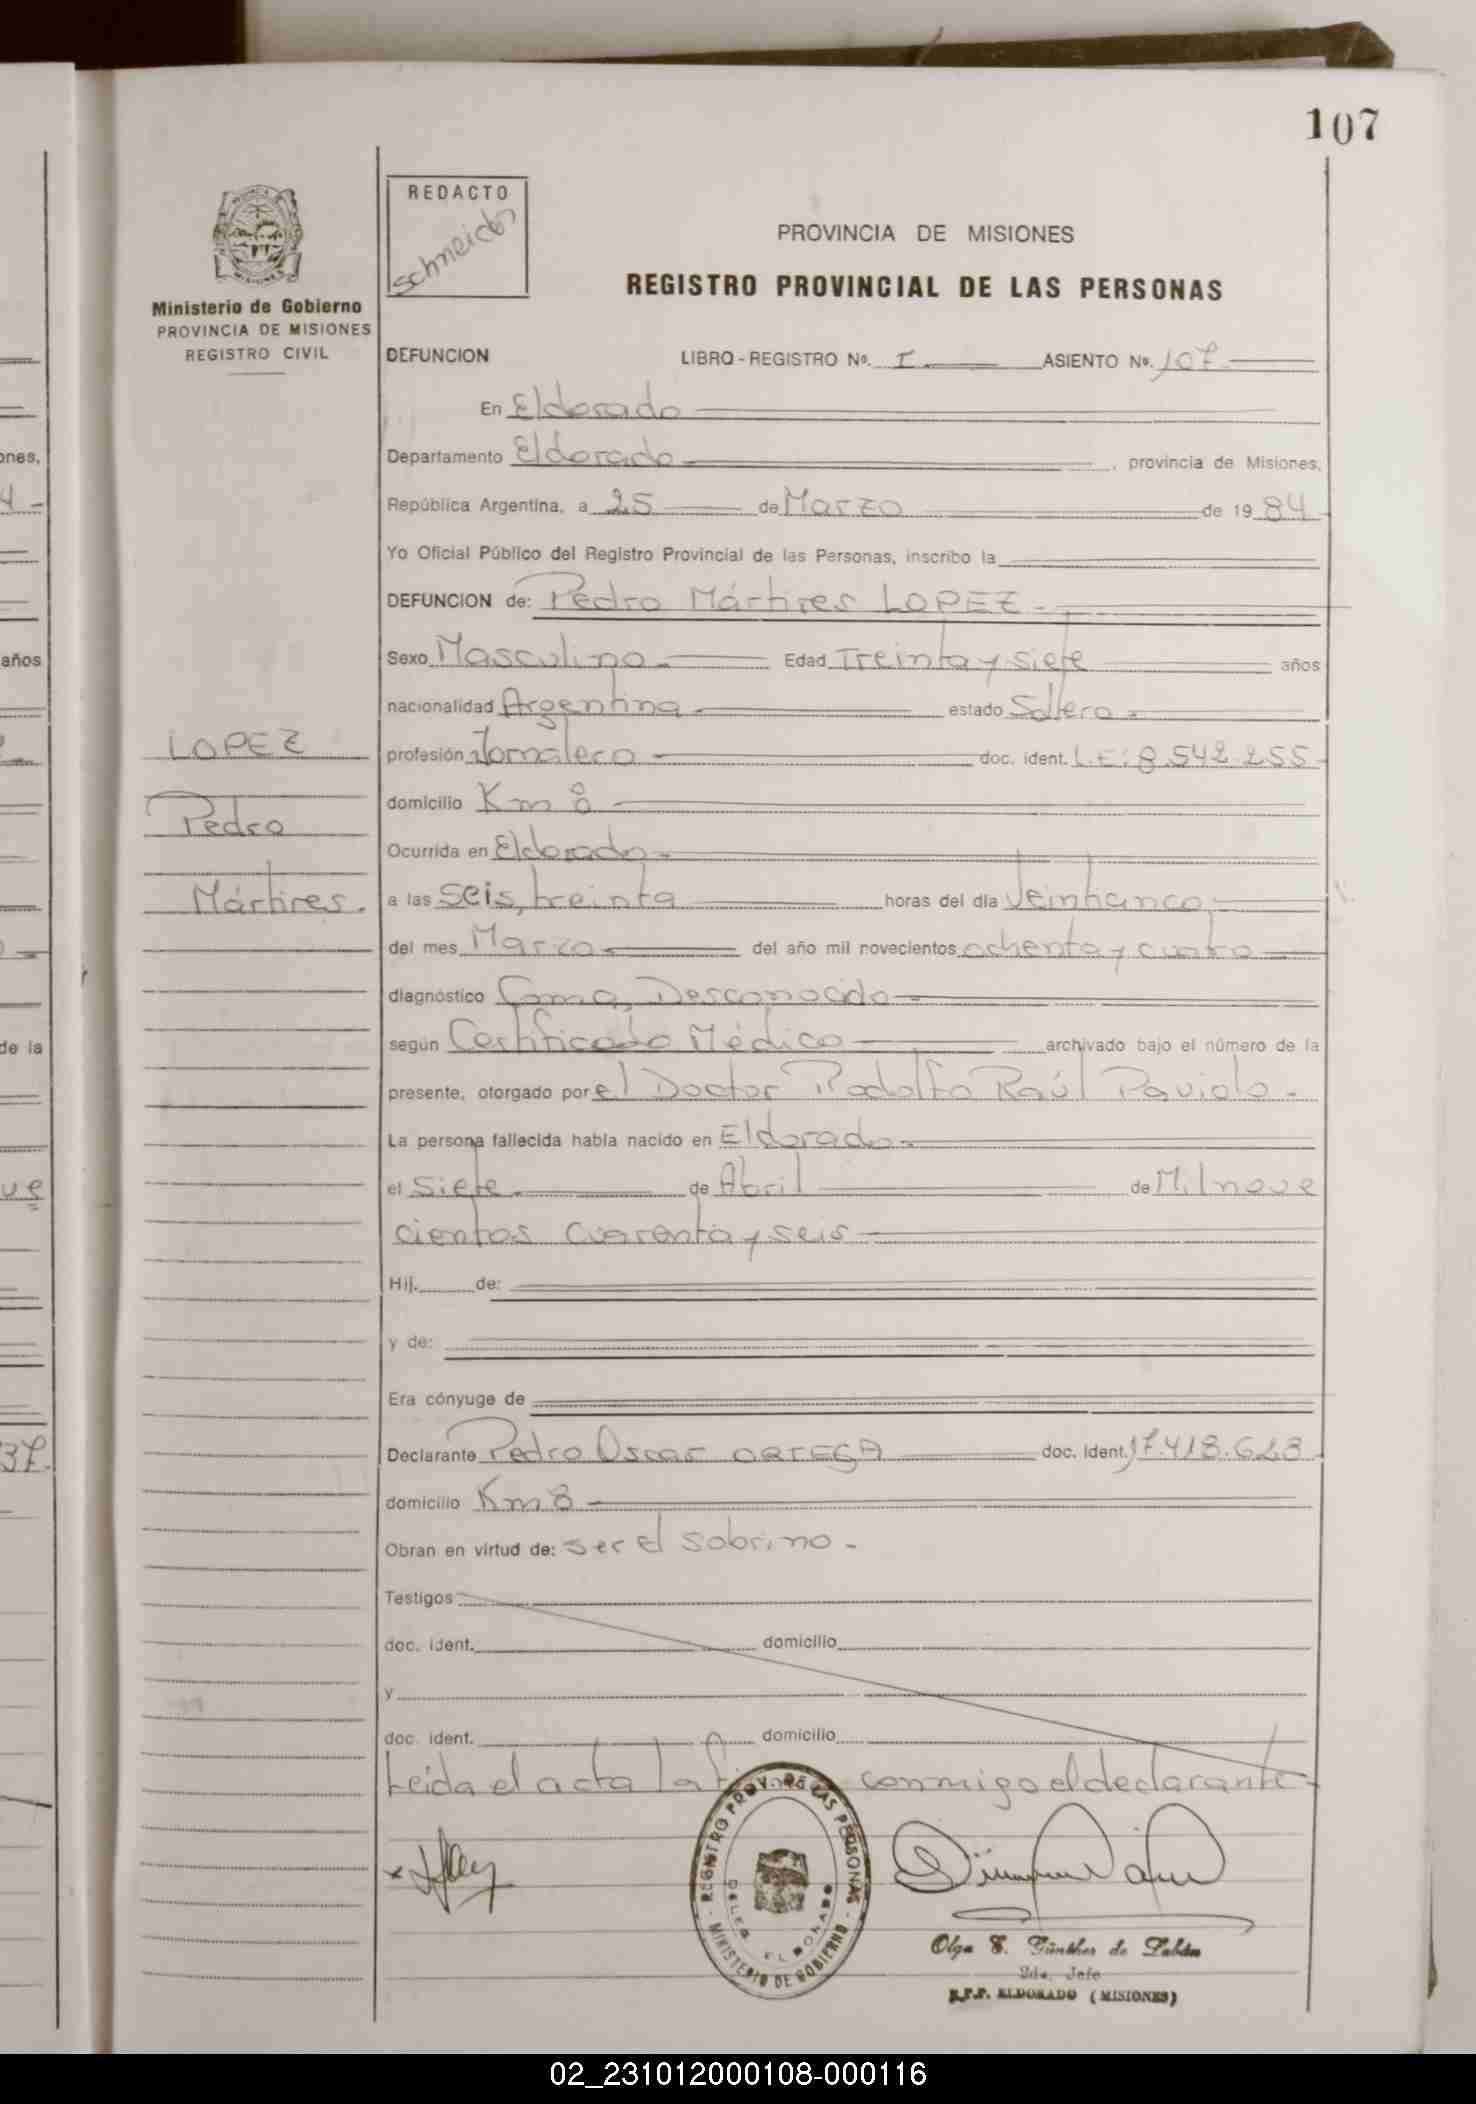 107
REDACTO
Schneider
PROVINCIA DE MISIONES
REGISTRO PROVINCIAL DE LAS PERSONAS
Ministerio de Gobierno
PROVINCIA DE MISIONES
REGISTRO CIVIL
DEFUNCION LIBRO - REGISTRO Nº. I ASIENTO Nº. 107
En Eldorado
Departamento Eldorado, provincia de Misiones,
República Argentina, a 25 de Marzo de 1984
Yo Oficial Público del Registro Provincial de las Personas, inscribo la
DEFUNCION de: Pedro Mártires LOPEZ.
Sexo Masculino. Edad Treinta y siete años
nacionalidad Argentina estado Soltero.
LOPEZ
profesión Jornalero doc. ident. L.E: 8.542.255
domicilio Km 8
Pedro
Ocurrida en Eldorado.
Mártires.
a las seis, treinta horas del día Veinticinco
del mes Marzo. del año mil novecientos ochenta y cuatro
diagnóstico Coma, Desconocido
según Certificado Médico archivado bajo el número de la
presente, otorgado por el Doctor Rodolfo Raúl Paviolo.
La persona fallecida había nacido en Eldorado.
el siete. de Abril de Mil nove
cientos cuarenta y seis
Hij. de:
y de:
Era cónyuge de
Declarante Pedro Oscar ORTEGA doc. ident. 17.418.623
domicilio Km 8
Obran en virtud de: ser el sobrino.
Testigos
doc. ident. domicilio
y
doc. ident. domicilio
Leida el acta la conmigo el declarante
REGISTRO PROV. DE LAS PERSONAS
DELEG. ELDORADO
MINISTERIO DE GOBIERNO
Olga E. Günther de
2da. Jefe
R.P.P. ELDORADO (MISIONES)
ones,
4 -
años
de la
ve
37.
02_231012000108-000116